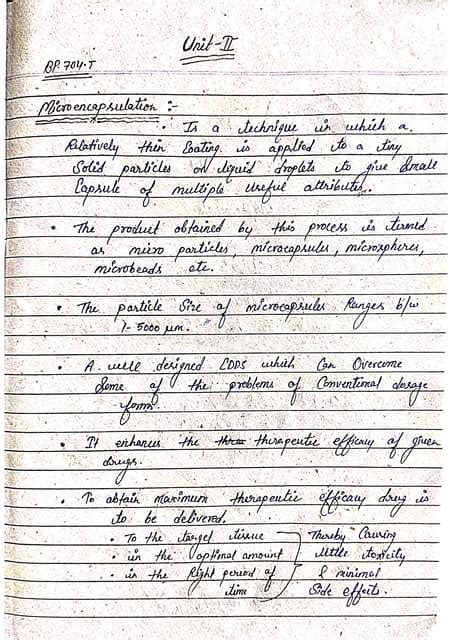 Unit-II
BP.704.T
Microencapsulation :-
• Is a technique in which a
Relatively thin Coating is applied to a tiny
Solid particles or liquid droplets to give Small
Capsule of multiple Useful attributes.
• The product obtained by this process is termed
as micro particles, microcapsules, microspheres,
microbeads etc.
• The particle Size of microcapsules Ranges b/w
1-5000 µm.
• A well designed CDDS which Can Overcome
Some of the problems of Conventional dosage
form.
• It enhances the therapeutic efficacy of given
drugs.
• To obtain maximum therapeutic efficacy drug is
to be delivered.
• To the target tissue
• in the optional amount
• in the Right period of
time
Thereby Causing
little toxicity
& minimal
Side effects.